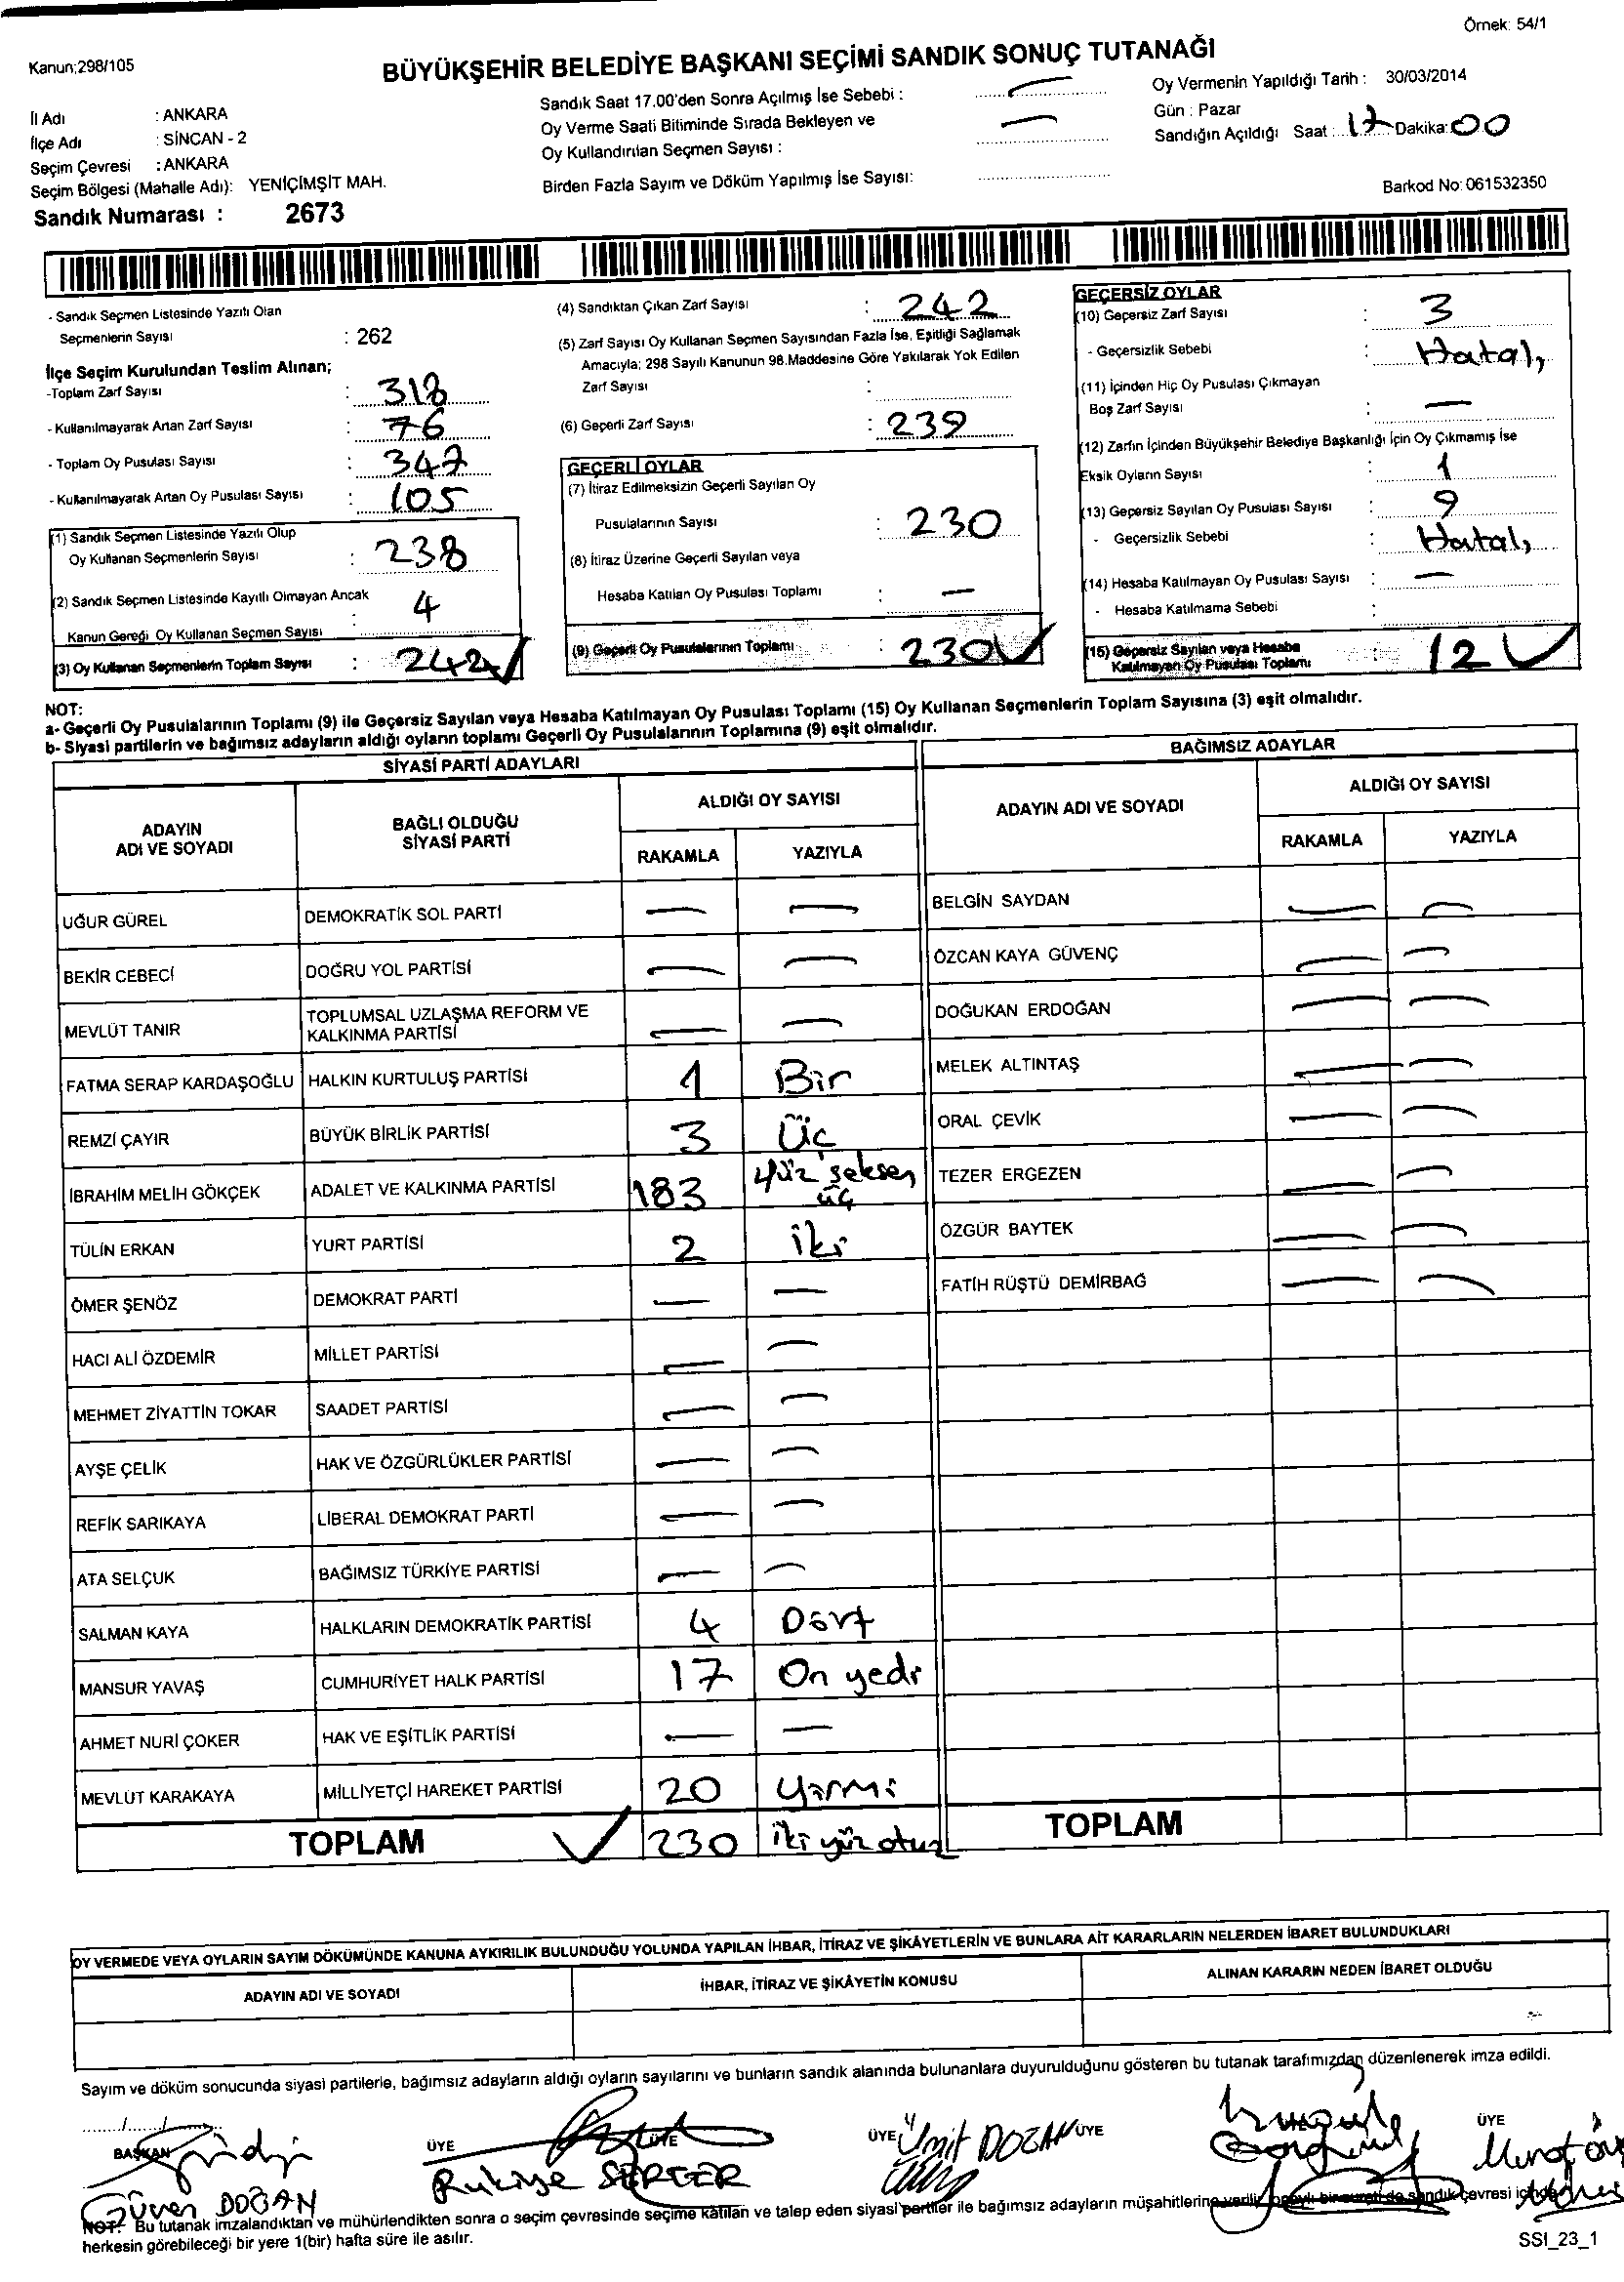 Örnek: 54/1
Kanun;298/105
BÜYÜKŞEHİR BELEDİYE BAŞKANI SEÇİMİ SANDIK SONUÇ TUTANAĞI
İl Adı : ANKARA
İlçe Adı : SİNCAN - 2
Seçim Çevresi : ANKARA
Seçim Bölgesi (Mahalle Adı): YENİÇİMŞİT MAH.
Sandık Numarası : 2673
Sandık Saat 17.00'den Sonra Açılmış İse Sebebi : —
Oy Verme Saati Bitiminde Sırada Bekleyen ve
Oy Kullandırılan Seçmen Sayısı : —
Birden Fazla Sayım ve Döküm Yapılmış İse Sayısı:
Oy Vermenin Yapıldığı Tarih : 30/03/2014
Gün : Pazar
Sandığın Açıldığı Saat : 17 Dakika: 00
Barkod No: 061532350
- Sandık Seçmen Listesinde Yazılı Olan
Seçmenlerin Sayısı : 262
İlçe Seçim Kurulundan Teslim Alınan;
-Toplam Zarf Sayısı : 318
- Kullanılmayarak Artan Zarf Sayısı : 76
- Toplam Oy Pusulası Sayısı : 347
- Kullanılmayarak Artan Oy Pusulası Sayısı : 105
(1) Sandık Seçmen Listesinde Yazılı Olup
Oy Kullanan Seçmenlerin Sayısı : 238
(2) Sandık Seçmen Listesinde Kayıtlı Olmayan Ancak
Kanun Gereği Oy Kullanan Seçmen Sayısı : 4
(3) Oy Kullanan Seçmenlerin Toplam Sayısı : 242
(4) Sandıktan Çıkan Zarf Sayısı : 242
(5) Zarf Sayısı Oy Kullanan Seçmen Sayısından Fazla İse, Eşitliği Sağlamak
Amacıyla; 298 Sayılı Kanunun 98.Maddesine Göre Yakılarak Yok Edilen
Zarf Sayısı :
(6) Geçerli Zarf Sayısı : 239
GEÇERLİ OYLAR
(7) İtiraz Edilmeksizin Geçerli Sayılan Oy
Pusulalarının Sayısı : 230
(8) İtiraz Üzerine Geçerli Sayılan veya
Hesaba Katılan Oy Pusulası Toplamı : —
(9) Geçerli Oy Pusulalarının Toplamı : 230
GEÇERSİZ OYLAR
(10) Geçersiz Zarf Sayısı : 3
- Geçersizlik Sebebi : Hatalı
(11) İçinden Hiç Oy Pusulası Çıkmayan
Boş Zarf Sayısı : —
(12) Zarfın İçinden Büyükşehir Belediye Başkanlığı İçin Oy Çıkmamış İse
Eksik Oyların Sayısı : 1
(13) Geçersiz Sayılan Oy Pusulası Sayısı : 9
- Geçersizlik Sebebi : Hatalı
(14) Hesaba Katılmayan Oy Pusulası Sayısı : —
- Hesaba Katılmama Sebebi :
(15) Geçersiz Sayılan veya Hesaba
Katılmayan Oy Pusulası Toplamı : 12
NOT:
a- Geçerli Oy Pusulalarının Toplamı (9) ile Geçersiz Sayılan veya Hesaba Katılmayan Oy Pusulası Toplamı (15) Oy Kullanan Seçmenlerin Toplam Sayısına (3) eşit olmalıdır.
b- Siyasi partilerin ve bağımsız adayların aldığı oyların toplamı Geçerli Oy Pusulalarının Toplamına (9) eşit olmalıdır.
SİYASİ PARTİ ADAYLARI
ADAYIN ADI VE SOYADI BAĞLI OLDUĞU SİYASİ PARTİ ALDIĞI OY SAYISI
RAKAMLA YAZIYLA
UĞUR GÜREL DEMOKRATİK SOL PARTİ — —
BEKİR CEBECİ DOĞRU YOL PARTİSİ — —
MEVLÜT TANIR TOPLUMSAL UZLAŞMA REFORM VE KALKINMA PARTİSİ — —
FATMA SERAP KARDAŞOĞLU HALKIN KURTULUŞ PARTİSİ 1 Bir
REMZİ ÇAYIR BÜYÜK BİRLİK PARTİSİ 3 Üç
İBRAHİM MELİH GÖKÇEK ADALET VE KALKINMA PARTİSİ 183 Yüz seksen üç
TÜLİN ERKAN YURT PARTİSİ 2 iki
ÖMER ŞENÖZ DEMOKRAT PARTİ — —
HACI ALİ ÖZDEMİR MİLLET PARTİSİ — —
MEHMET ZİYATTİN TOKAR SAADET PARTİSİ — —
AYŞE ÇELİK HAK VE ÖZGÜRLÜKLER PARTİSİ — —
REFİK SARIKAYA LİBERAL DEMOKRAT PARTİ — —
ATA SELÇUK BAĞIMSIZ TÜRKİYE PARTİSİ — —
SALMAN KAYA HALKLARIN DEMOKRATİK PARTİSİ 4 Dört
MANSUR YAVAŞ CUMHURİYET HALK PARTİSİ 17 On yedi
AHMET NURİ ÇOKER HAK VE EŞİTLİK PARTİSİ — —
MEVLÜT KARAKAYA MİLLİYETÇİ HAREKET PARTİSİ 20 Yirmi
TOPLAM 230 iki yüz otuz
BAĞIMSIZ ADAYLAR
ADAYIN ADI VE SOYADI ALDIĞI OY SAYISI
RAKAMLA YAZIYLA
BELGİN SAYDAN — —
ÖZCAN KAYA GÜVENÇ — —
DOĞUKAN ERDOĞAN — —
MELEK ALTINTAŞ — —
ORAL ÇEVİK — —
TEZER ERGEZEN — —
ÖZGÜR BAYTEK — —
FATİH RÜŞTÜ DEMİRBAĞ — —
TOPLAM
OY VERMEDE VEYA OYLARIN SAYIM DÖKÜMÜNDE KANUNA AYKIRILIK BULUNDUĞU YOLUNDA YAPILAN İHBAR, İTİRAZ VE ŞİKÂYETLERİN VE BUNLARA AİT KARARLARIN NELERDEN İBARET BULUNDUKLARI
ADAYIN ADI VE SOYADI İHBAR, İTİRAZ VE ŞİKÂYETİN KONUSU ALINAN KARARIN NEDEN İBARET OLDUĞU
Sayım ve döküm sonucunda siyasi partilerle, bağımsız adayların aldığı oyların sayılarını ve bunların sandık alanında bulunanlara duyurulduğunu gösteren bu tutanak tarafımızdan düzenlenerek imza edildi.
...../..../............
BAŞKAN ÜYE ÜYE ÜYE ÜYE ÜYE
Güven DOĞAN Rukiye SERTER Ümit DOĞAN Murat
NOT: Bu tutanak imzalandıktan ve mühürlendikten sonra o seçim çevresinde seçime katılan ve talep eden siyasi partiler ile bağımsız adayların müşahitlerine verilir, onaylı bir sureti de sandık çevresi içinde
herkesin görebileceği bir yere 1(bir) hafta süre ile asılır.
SSI_23_1